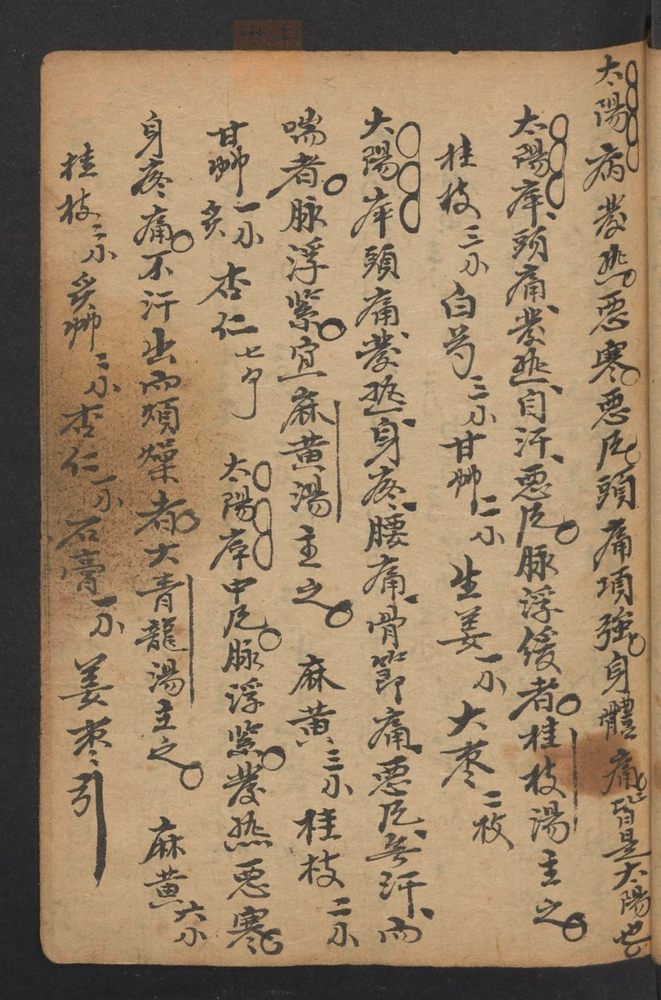 太陽病發热惡寒惡风頭痛項強身體痛皆是太陽也
太陽症頭痛發热自汗惡风脉浮缓者桂枝湯主之
桂枝三小 白芍三小 甘艸二小 生姜一小 大枣二枚
太陽症頭痛發热身疼腰痛骨節痛惡风無汗而
喘者脉浮紧宜麻黄湯主之 麻黄三小 桂枝二小
甘艸一小炙 杏仁七个 太陽症中风脉浮紧發热惡寒
身疼痛不汗出而煩燥者大青龍湯主之 麻黄六小
桂枝二小 炙艸二小 杏仁一小 石膏一小 姜枣引